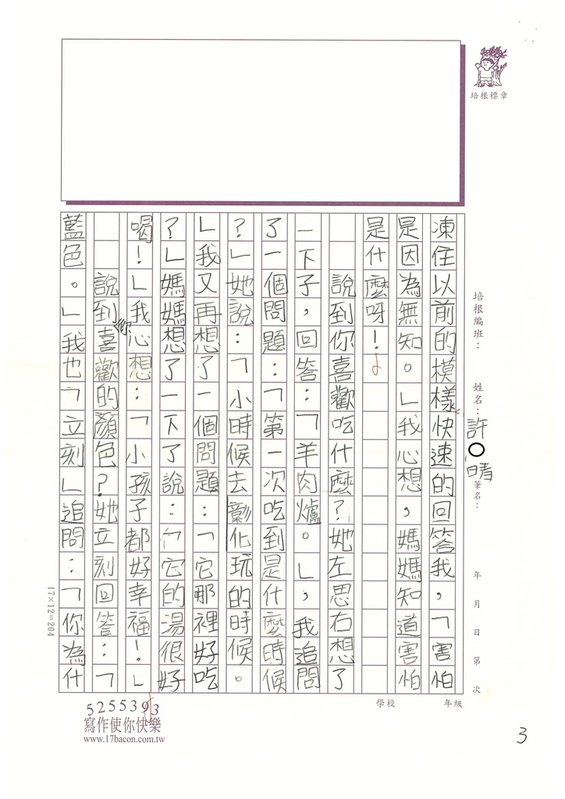 培根標章
培根編班：
姓名：許○晴
筆名：
年 月 日 第 次
凍住以前的模樣快速的回答我，「害怕
是因為無知。」我心想，媽媽知道害怕
是什麼呀！
說到你喜歡吃什麼？她左思右想了
一下子，回答：「羊肉爐。」，我追問
了一個問題：「第一次吃到是什麼時候
？」她說：「小時候去彰化玩的時候。
」我又再想了一個問題：「它那裡好吃
？」媽媽想了一下了說：「它的湯很好
喝！」我心想：「小孩子都好幸福！」
說到你喜歡的顏色？她立刻回答：「
藍色。」我也「立刻」追問：「你為什
17×12=204
學校 年級
5255393
寫作使你快樂
www.17bacon.com.tw
3